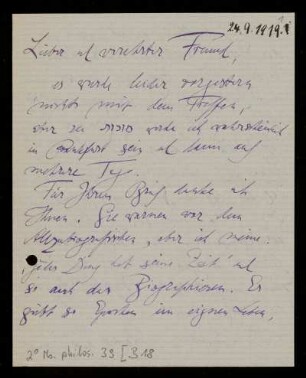 24.9.1919.
Lieber und verehrter Freund,
es wurde leider vorgestern
nichts mit dem Treffen,
aber zu werde ich wahrscheinlich
in Frankfurt sein und kann auf
mehrere Tage.
Für Ihren Brief danke ich
Ihnen. Sie warnen vor dem
Autobiografischen, aber ich meine:
"Jedes Ding hat seine Zeit" und
so auch das Biographieren. Es
giebt so Epochen im eigenen Leben,
2° Ms. philos. 39 [B 18